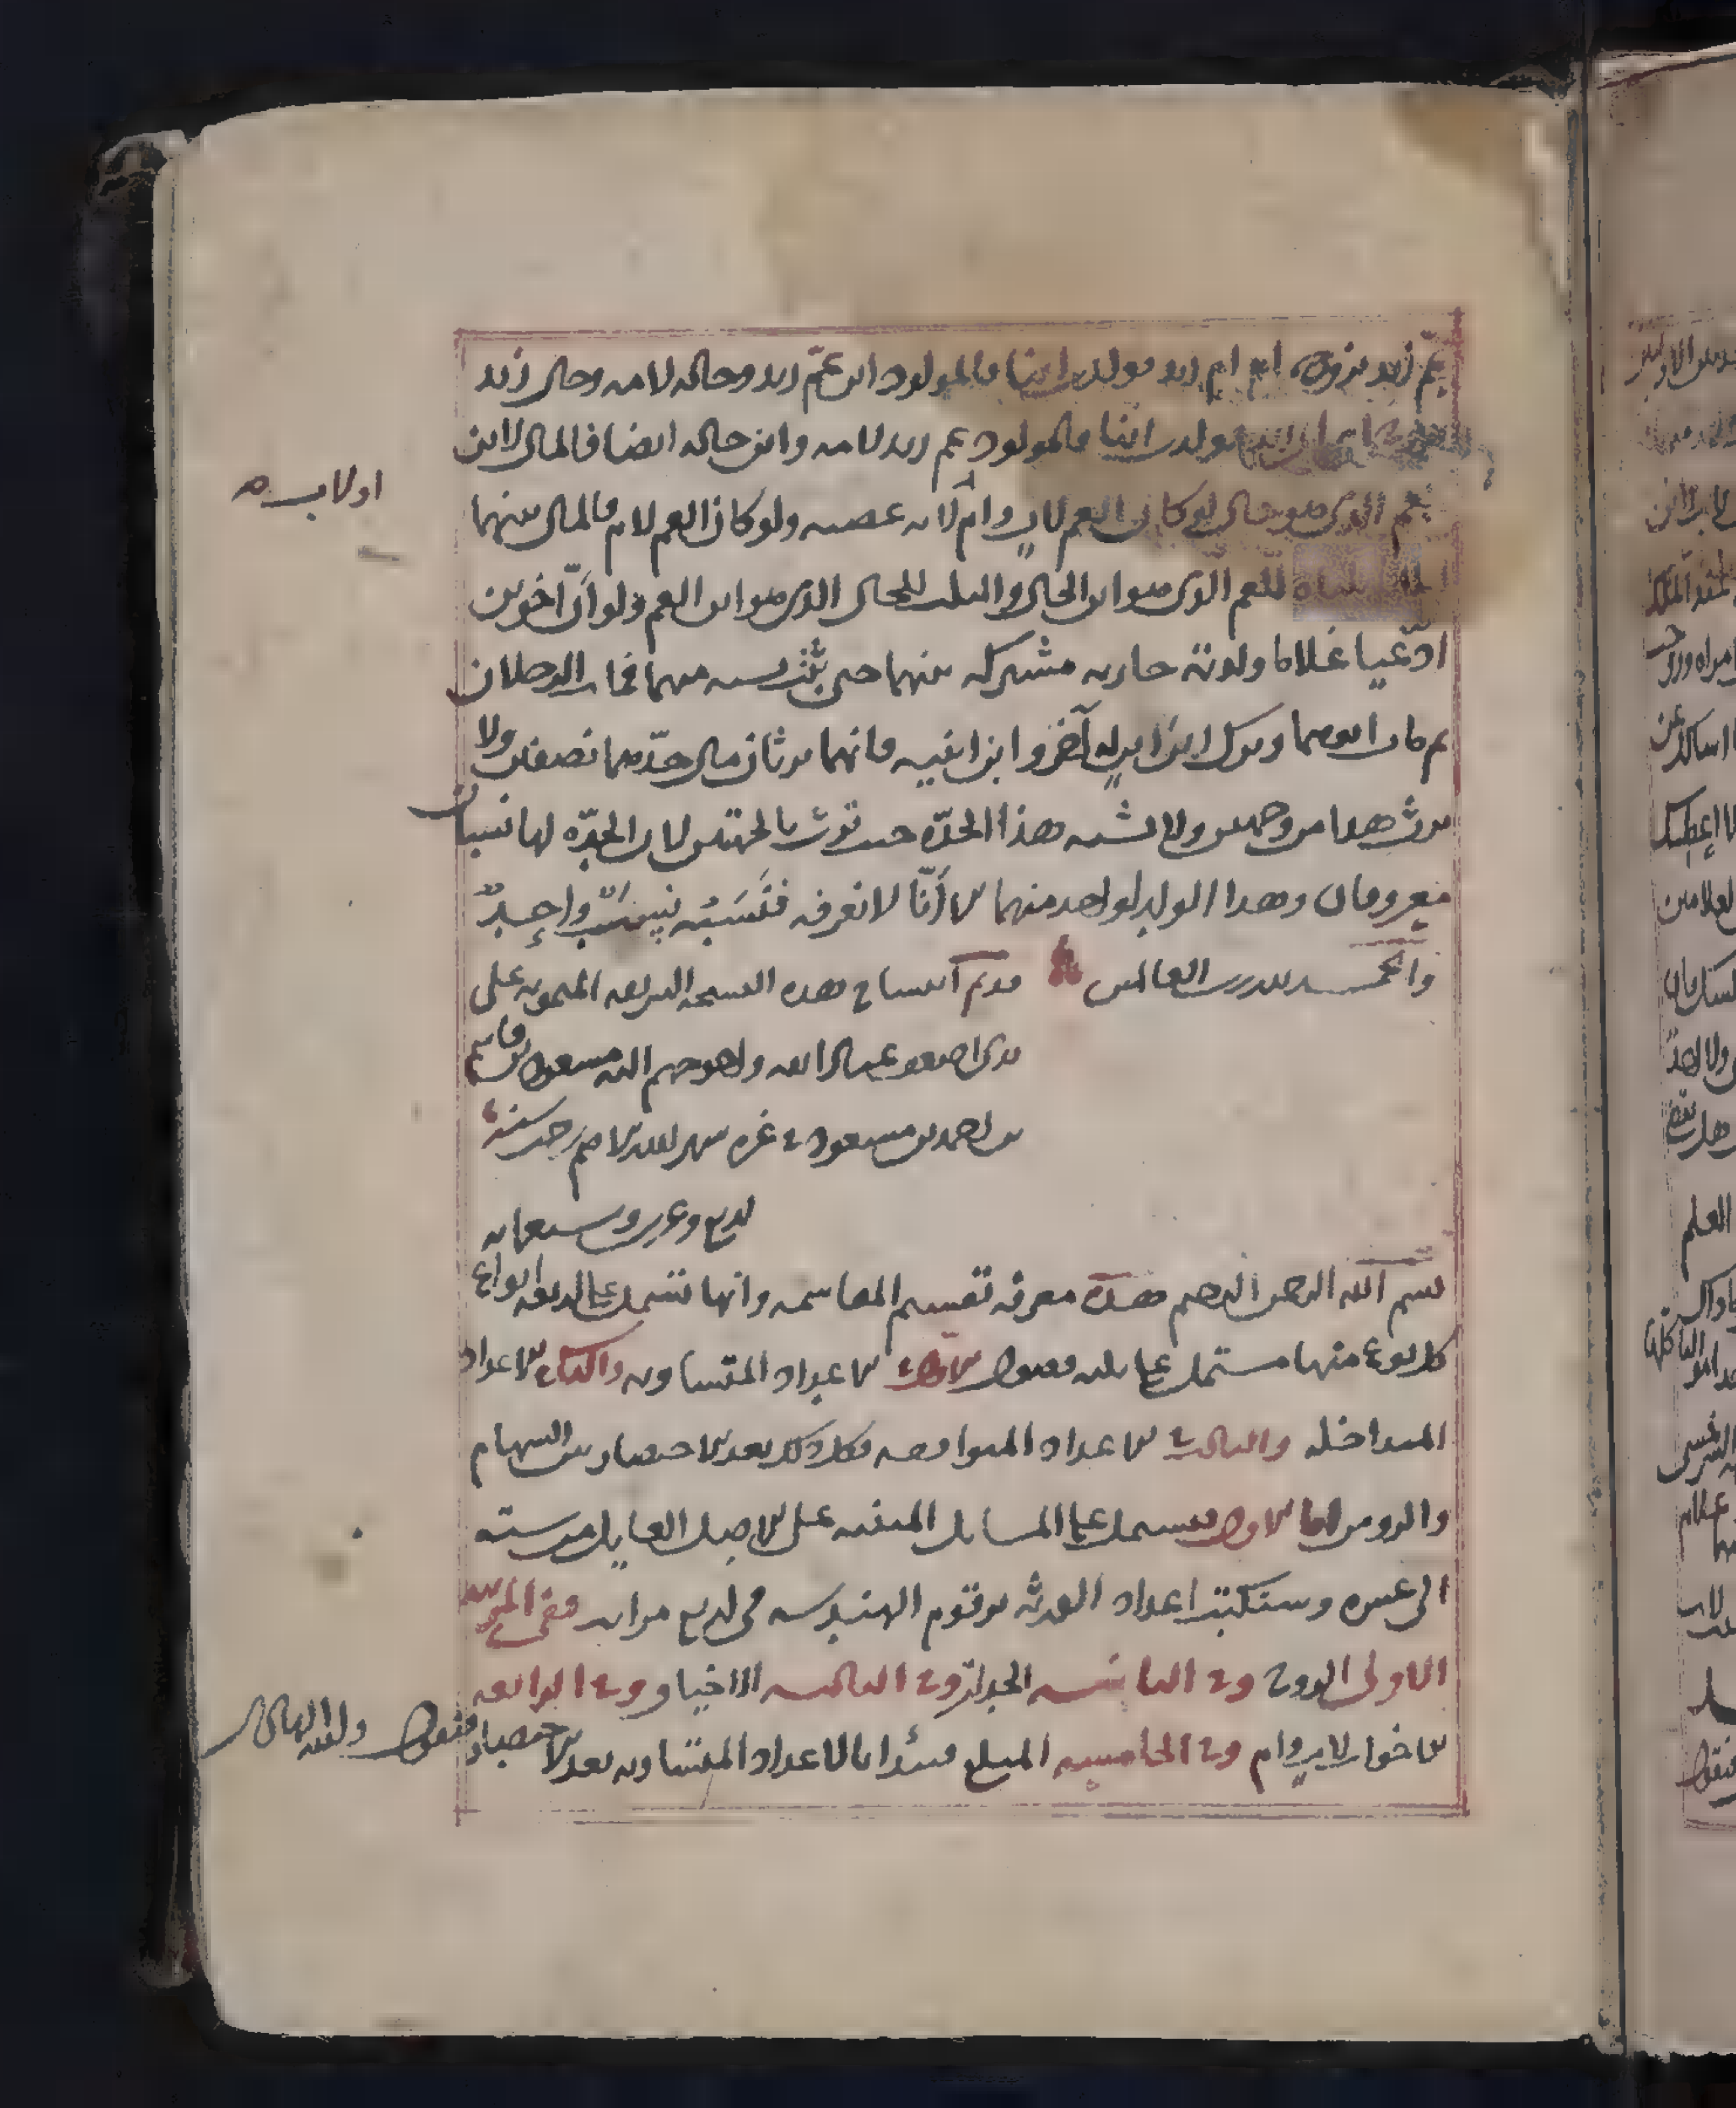 عم زيد تزوج ام ام زيد فولدت ابنا فالمولود ابن عم زيد وخاله لامه وخال زيد
فولدت ابنا فالمولود عم زيد لامه وابن خاله ايضا فالمال لابن
عم الذي هو خال لو كان العم لاب وام لانه عصبه ولو كان العم لام فالمال بينهما
للعم الذي هو ابن الخال والثلث للخال الذي هو ابن العم ولو ان اخوين
ادعيا غلاما ولدته جاريه مشتركه بينهما حتى يثبت نسبه منهما فمات الرجلان
ثم مات ابوهما وترك ابن ابن له آخر وابن ابنيه فانهما يرثان مال جدهما نصفين ولا
يرث هذا من وجهين ولا يشبه هذا الجده حيث ترث بالجهتين لان الجده لها نسبان
معروفان وهذا الولد لواحد منهما لانا لا نعرفه فنسبه نسب واحد
والحمد لله رب العالمين قد تم انتساخ هذه النسخه الشريفه الميمونه على
يدي اضعف عباد الله واحوجهم اليه مسعود بن قاسم
بن احمد بن مسعود في غره شهر الله الاصم رجب سنه
اربع وعشرين وسبعمايه
بسم الله الرحمن الرحيم هذه معرفه تقسيم المقاسمه وانها تشتمل على اربعه انواع
كل نوع منها مشتمل على ثلثه فصول الاول الاعداد المتساويه والثاني الاعداد
المتداخله والثالث الاعداد المتوافقه فكل ذلك بعد الاختصار بين السهام
والروس اما الاول فيشتمل على المسايل المبنيه على الاصل العايل من سته
الى عشره وستكتب اعداد الورثه برقوم الهندسه في اربع مراتب ففي المرتبه
الاولى الزوج وفي الثانيه الجدات وفي الثالثه الاخياف وفي الرابعه
الاخوات لاب وام وفي الخامسه المبلغ مبتدئا بالاعداد المتساويه بعد الاختصار فنقول والله الهادي
او لاب صح